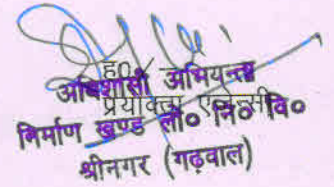 ह0/
अधिशासी अभियन्ता
प्रयोक्ता एजेन्सी
निर्माण खण्ड लो० नि० वि०
श्रीनगर (गढ़वाल)